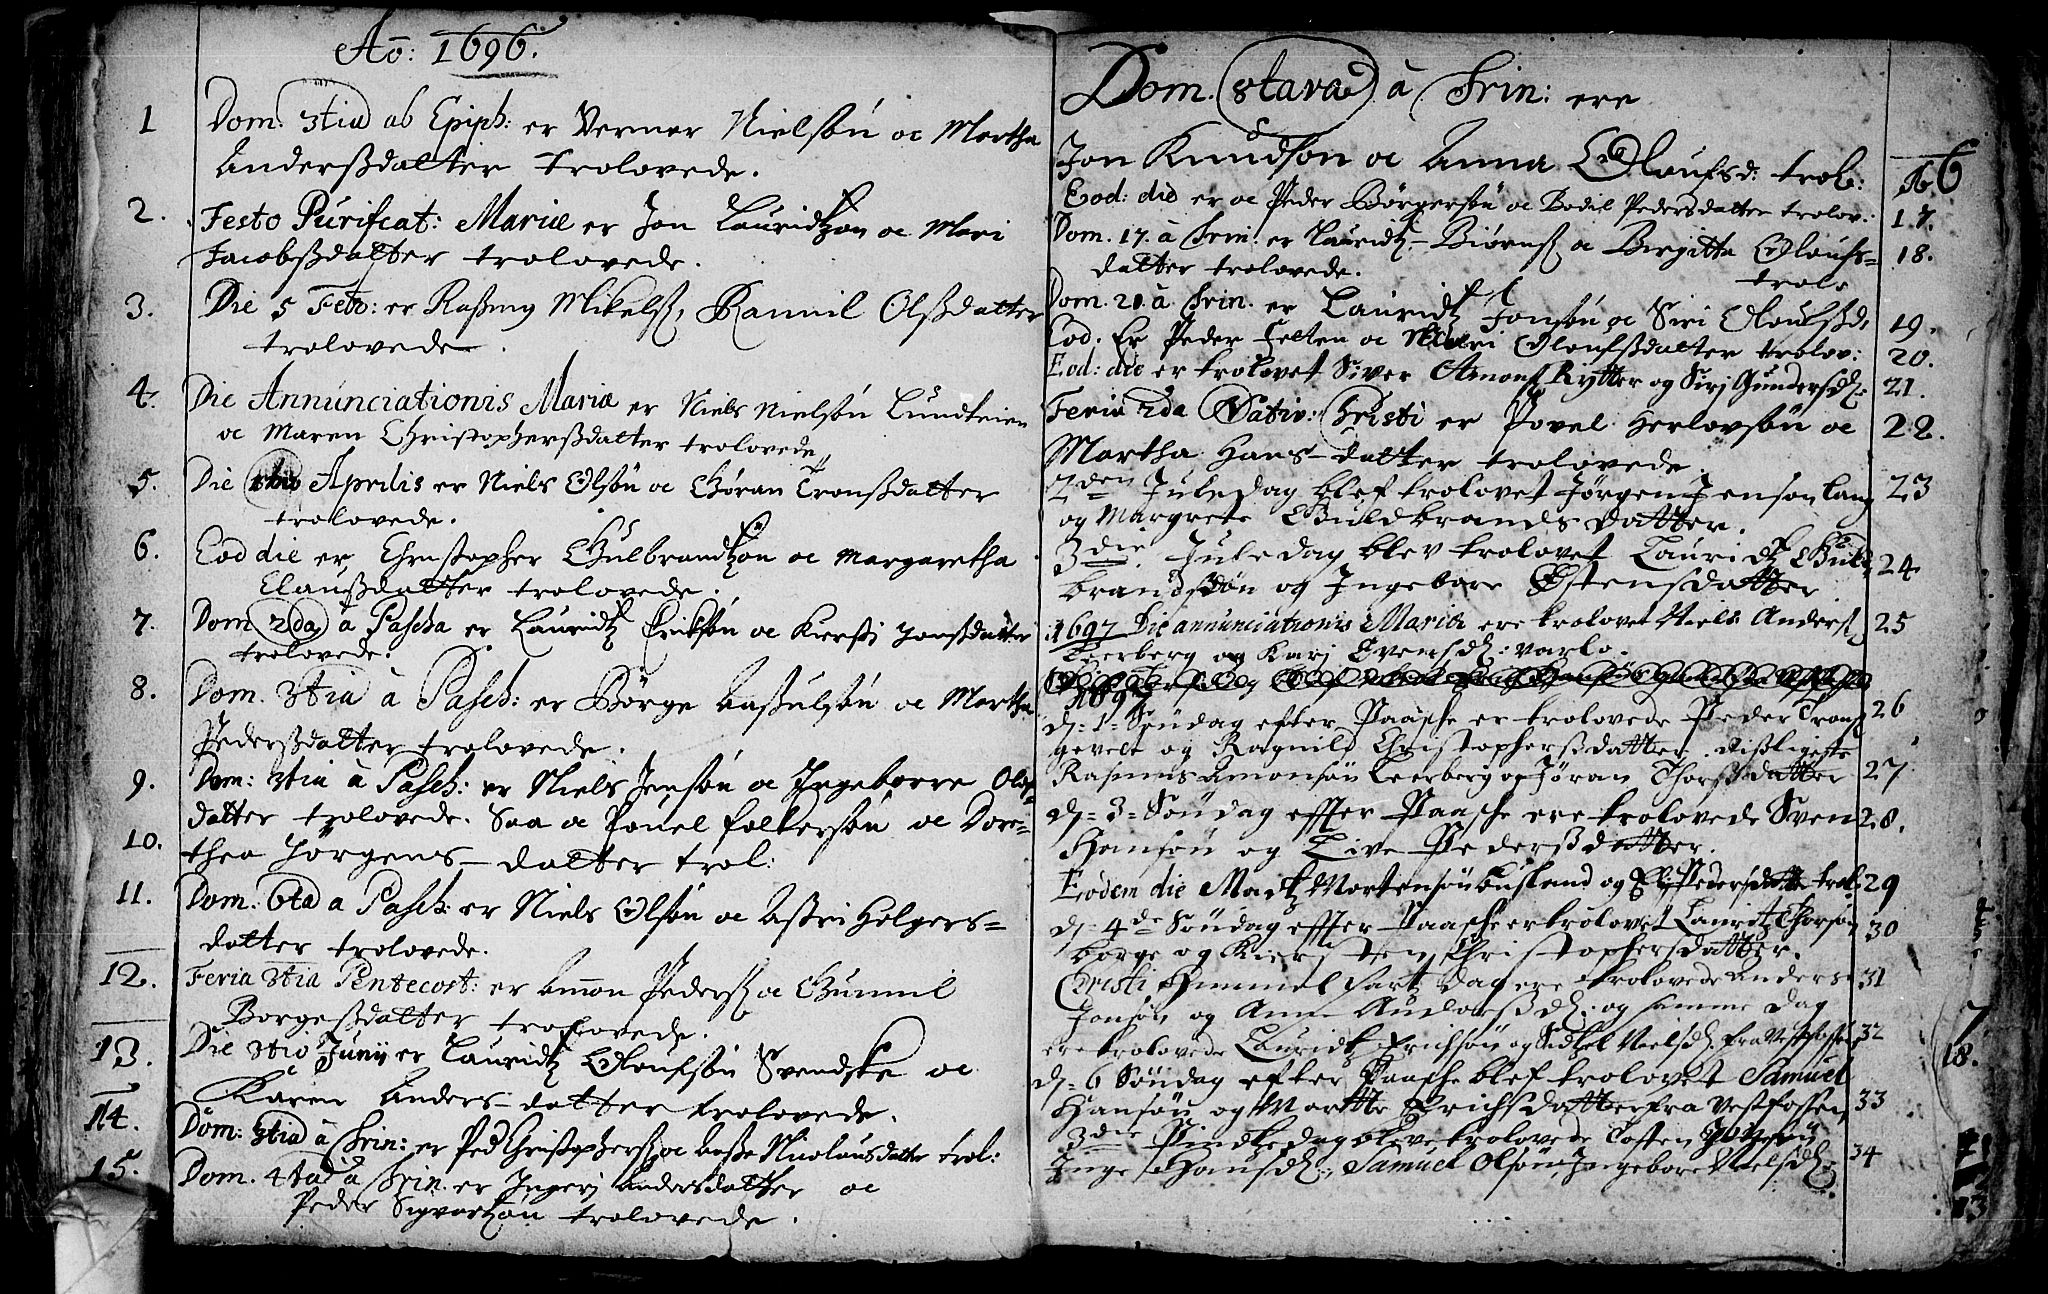 Aō: 1696.
1 Dom. 3tia ab Epiph: er Verner Nielsøn oc Martha
Andersßdatter trolovede.
2. Festo Purificat: Mariæ er Jon Lauridtzøn oc Mari
Jacobsßdatter trolovede.
3. Die 5 Feb: er Raßmg Mikelß, Rannil Olsßdatter
trolovede.
4. Die Annunciationis Mariæ er Niels Nielsøn Lundteien
oc Maren Christophersßdatter trolovede
5. Die Aprilis er Niels Olsøn oc Gøran Tronsßdatter
trolovede.
6. Eod die er Christopher Gulbrandtzøn oc Margaretha
Clausßdatter trolovede.
7. Dom 2da à Pascha er Lauridtz Eriksøn oc Kiersti Jonsßdatter
trolovede.
8. Dom. 3tia à Pasch: er Børge Aaßulsøn oc Martha
Pedersßdatter trolovede.
9. Dom: 3tia à Pasch: er Niels Jensøn oc Ingeborre Olss-
datter trolovede. Saa oc Povel Folkersøn oc Dore-
10. thea Jörgens-datter trol:
11. Dom. 6ta a Pasch: er Niels Olsøn oc Aßri Holgers-
datter trolovede.
12. Feria 3tia Pentecost: er Amon Pederß oc Gunnil
Borgeßdatter trolovede.
13. Die 3tio Junij er Lauridtz Oloufsøn Svendske oc
Karen Anders-datter trolovede.
14. Dom: 3tia à Trin: er Ped Christophersß oc Aaße Nicolausdatter trol:
15. Dom. 4ta à Trin. er Ingerj Andersdatter oc
Peder Sigvartzøn trolovede.
Dom. 8tava à Trin: ere
Jon Knudsøn oc Anna Oloufsd: trol: 16
Eod: die er oc Peder Börgersøn oc Bodil Pedersdatter trolov: 17.
Dom. 17. à Trin: er Lauridtz Biørnß oc Birgitta Oloufs= 18.
datter trolovede.
trol.
Dom. 20. à Trin. er Lauridtz Jonsøn oc Siri Oloufsßd, 19.
Eod. Er Peder Felten oc Mari Oloufsßdatter trolov: 20.
Eod: die er trolovet Siver Amonß Rytter og Sirj Gundersdr: 21.
Feria 2da Nativ: Christi er Povel Herlovsøn oc 22.
Martha Hans-datter trolovede.
2den Juledag blef trolovet Jörgen Jenson Lang 23
og Margrete Guldbrands datter.
3die Juledag blev trolovet Lauridtz Gul= 24
brandsøn og Ingebore Østensdatter
1697 Die annunciationis Mariæ ere trolovet Niels Anderß 25
Leerberg og Karj Evensdr: Varlo.
1697
d. 1. Søndag efter Paasche er trolovede Peder Tronß 26
gevelt og Ragnild Christophersßdatter. Disligeste
Rasmus Amonsøn Leerberg og Jøran Thorsßdatter 27
d. 3. Søndag effter Paasche ere trolovede Sven 28.
Hansøn og Live Pedersßdatter.
Eodem die Madtz Mortensøn Busland og Eli Pedersdatter trol: 29
d. 4de Søndag effter Paasche er trolovet Lauritz Thorsøn 30
Borge og Kiersten Christophersdatter.
Cristi Himmelfartz Dag ere trolovede Anders 31
Jonsøn og Anne Andersßdr: og samme dag
ere trolovede Lauridtz Erichsøn og Sidtzel Nielsdr fra Vestfossen 32
d. 6 Søndag efter Paasche blef trolovet Samuel
Hansøn og Martte Erichsdatter fra Vestfossen 33
3die Pindtzedag bleve trolovede Tosten Joensøn
Inge Hansdr:, Samuel Olsøn Ingebore Nielsdr: 34
7
18.
13